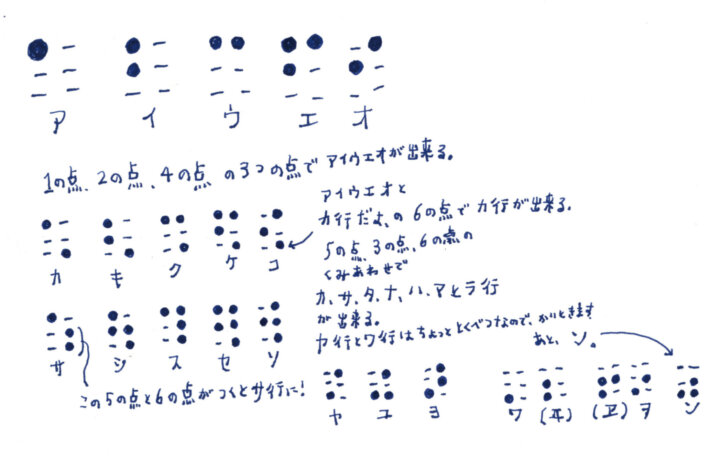 ア イ ウ エ オ
1の点、2の点、4の点 の3つの点でアイウエオが出来る。
アイウエオと
カ行だよ、の6の点でカ行が出来る。
カ キ ク ケ コ
5の点、3の点、6の点の
くみあわせで
カ、サ、タ、ナ、ハ、マとラ行
が出来る。
ヤ行とワ行はちょっととくべつなので、かいときます
あと、ン。
サ シ ス セ ソ
この5の点と6の点がつくとサ行に!
ヤ ユ ヨ ワ (ヰ) (ヱ) ヲ ン